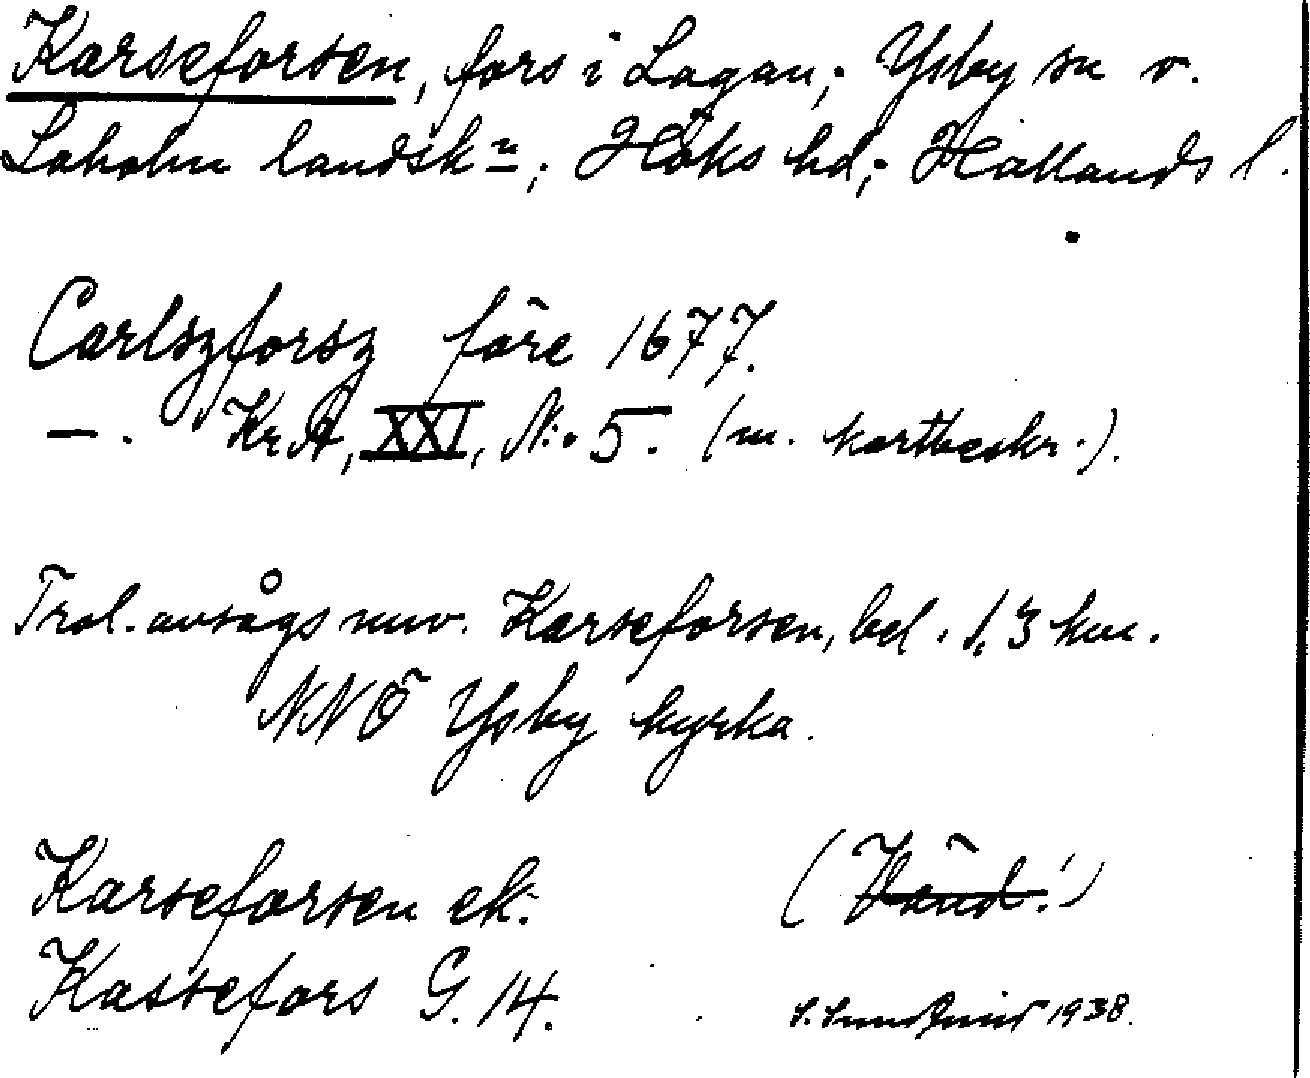 Karseforsen, fors i Lagan; Ysby sn o.
Laholm landskn; Höks hd; Hallands l.
Carlszforsz före 1677.
—. Kr.A, XXI, N:o 5. (m. kartbeskr.).
Trol. avsågs nuv. Karseforsen, bel. 1,3 km.
NNÖ Ysby kyrka.
Karseforsen ek.
(Vänd!)
Kassefors G. 14.
1938.